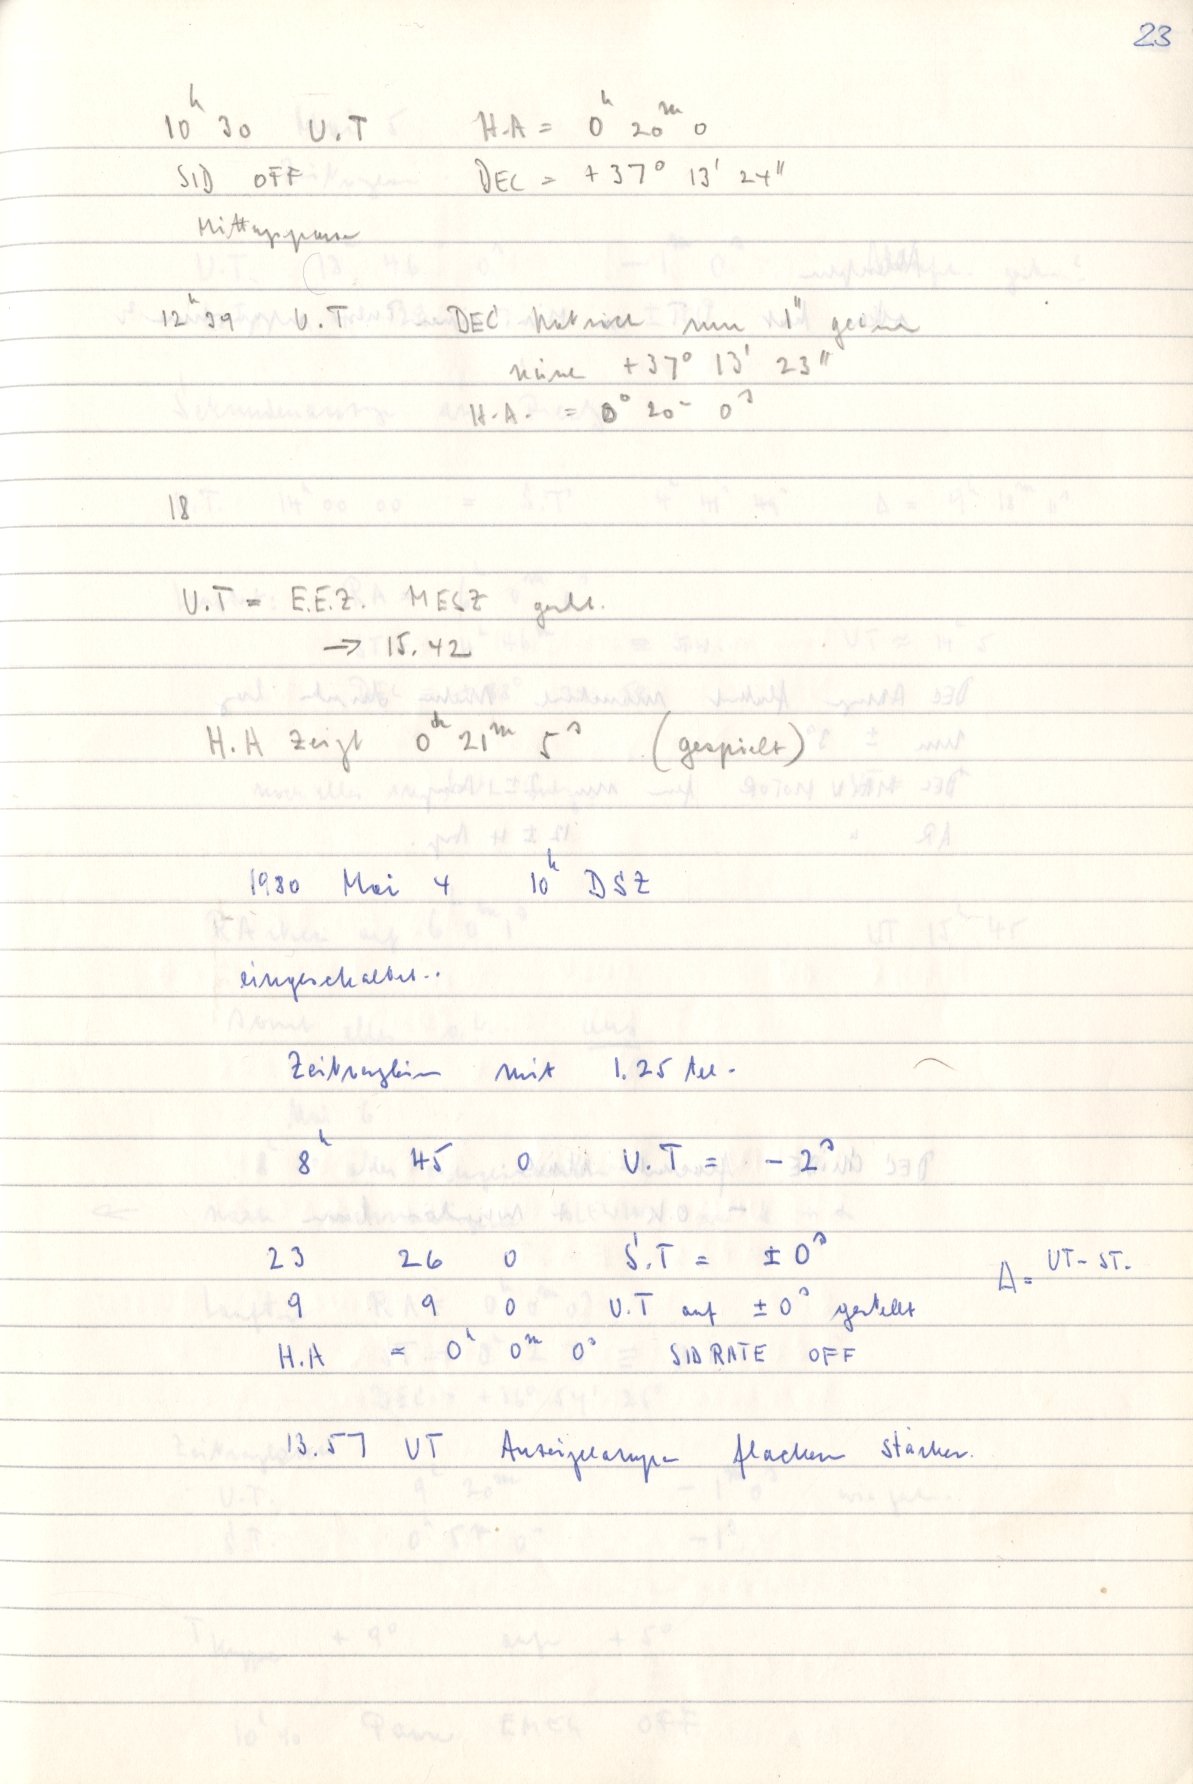 23
10h 30 U.T H.A = 0h 20m 0
SID OFF DEC = +37° 13' 24"
Mittagspause
12h 39 U.T DEC hat sich um 1" geändert
+37° 13' 23"
H.A. = 0° 20- 0s
18
U.T = E.E.Z. MESZ
→ 15.42
H.A zeigt 0h 21m 5s (gespielt)
1980 Mai 4 10h DSZ
eingeschaltet..
Zeitvergleich mit 1.25 Tel.
8h 45 0 U.T = - 2s
23 26 0 S.T = ± 0s
Δ = UT - ST.
9 9 0 U.T auf ± 0s gestellt
H.A = 0h 0m 0s SIDRATE OFF
13.57 UT Anzeigelampen flackern stärker.